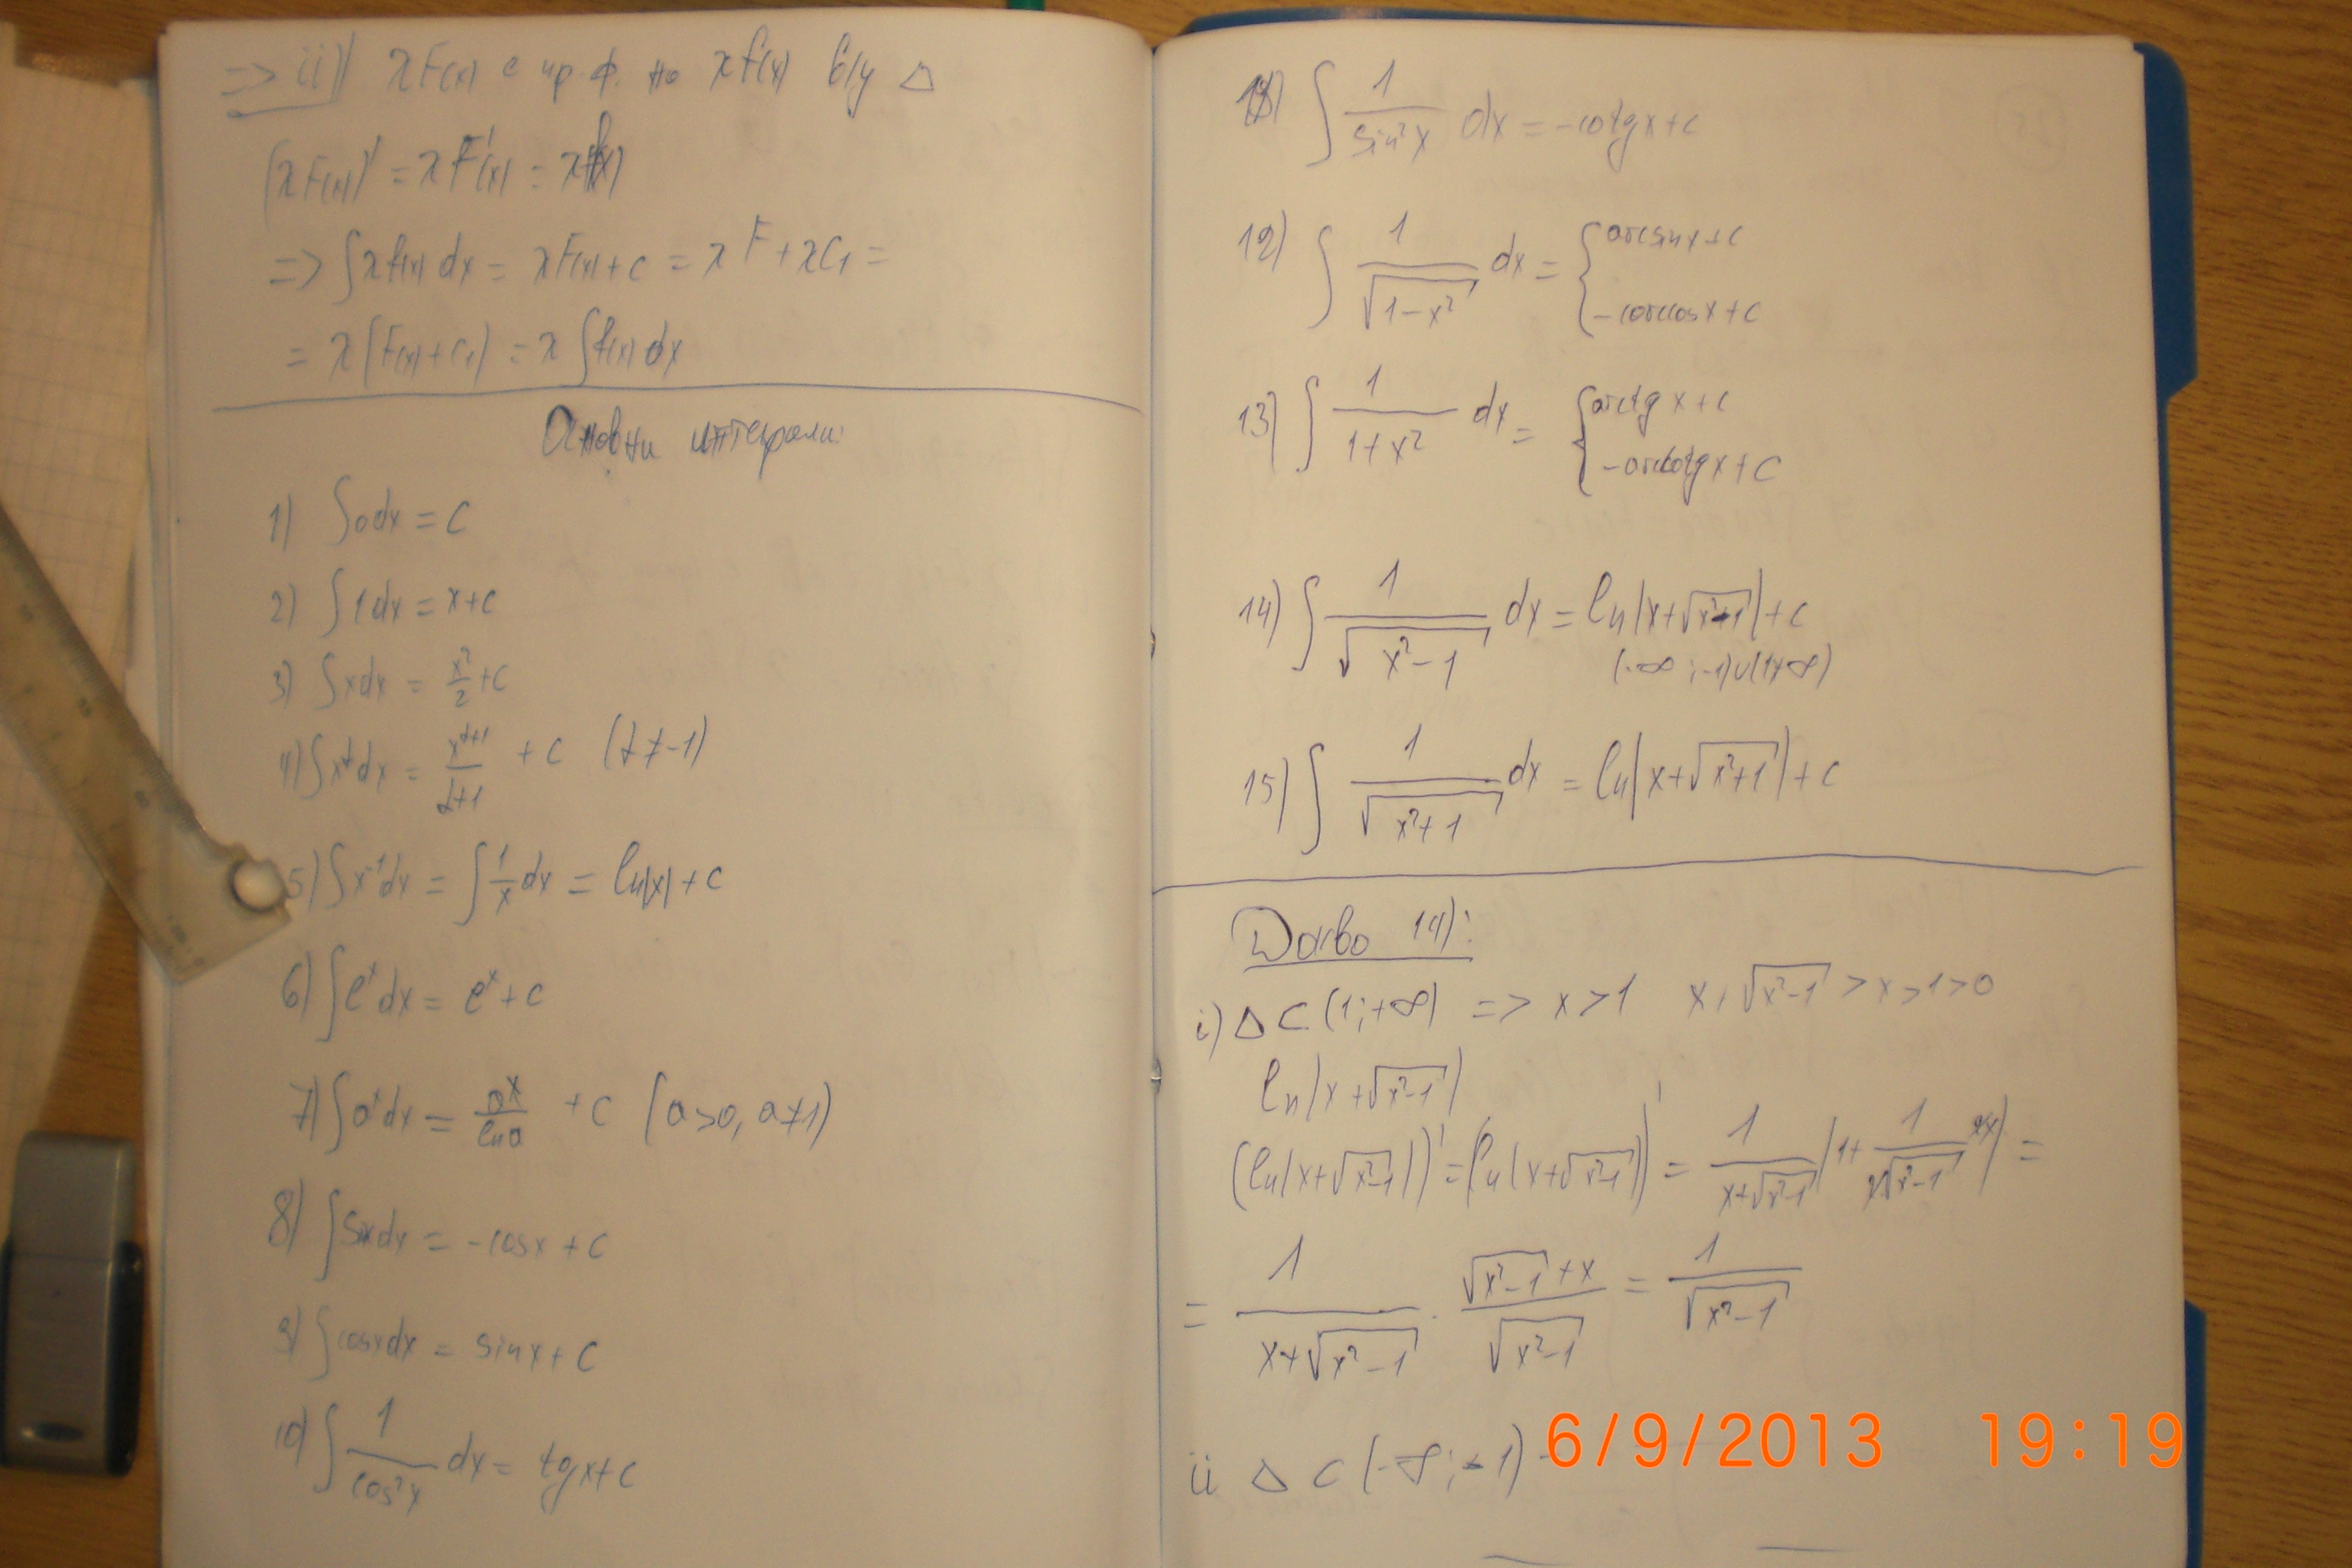 => ii) λF(x) е пр. ф. на λf(x) в/у Δ
(λF(x))' = λF'(x) = λf(x)
=> ∫λf(x)dx = λF(x)+c = λF+λC₁ =
= λ(F(x)+C₁) = λ∫f(x)dx
Основни интеграли:
1) ∫0dx = c
2) ∫1dx = x+c
3) ∫xdx = x²/2 +c
4) ∫x^α dx = x^(α+1)/(α+1) + c (α≠-1)
5) ∫x⁻¹dx = ∫1/x dx = ln|x|+c
6) ∫eˣdx = eˣ+c
7) ∫aˣdx = aˣ/lna +c (a>0, a≠1)
8) ∫sinxdx = -cosx+c
9) ∫cosxdx = sinx+c
10) ∫1/cos²x dx = tgx+c
11) ∫1/sin²x dx = -cotgx+c
12) ∫1/√(1-x²) dx = { arcsinx+c
-arccosx+c
13) ∫1/(1+x²) dx = { arctg x+c
-arccotgx+c
14) ∫1/√(x²-1) dx = ln|x+√(x²-1)|+c
(-∞;-1)∪(1;+∞)
15) ∫1/√(x²+1) dx = ln|x+√(x²+1)|+c
D-во 14):
i) Δ⊂(1;+∞) => x>1 x+√(x²-1) >x>1>0
ln|x+√(x²-1)|
(ln|x+√(x²-1)|)' = (ln(x+√(x²-1)))' = 1/(x+√(x²-1)) (1+ 1/(2√(x²-1)) 2x) =
= 1/(x+√(x²-1)) . (√(x²-1)+x)/√(x²-1) = 1/√(x²-1)
ii Δ⊂(-∞;-1)
6/9/2013 19:19